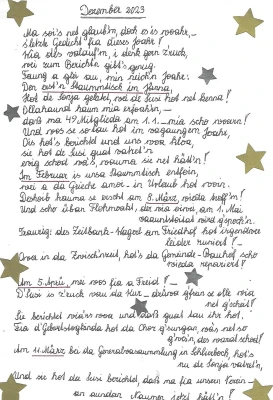 Dezember 2023
Ma soi's net glaub'm, doch es is woahr, -
's letzte Gedicht fia dieses Joahr!
Wia olls valauf'n, i denk gern z'ruck,
wei zum Berichtn gibt's gnug.
Faung a glei au, min
Den erst'n Staummtisch im Jänna,
Hot de Sonja g'leitet, net de Susi hot net kenna!
Ollahaund haum mia erfoahrn, -
daß ma 49 Mitglieda am 1.1. - mia scho woarn!
Und wos se so tau hot im vagaungenen Joahr,
Die hot's berichtet und uns woa kloa,
sie hot de Susi guat vatret'n
ewig schod wa's, waunma sie net hätt'n!
Im Februar is unsa Staummtisch entfoin,
wei a da Griche amoi - in Urlaub hot woin.
Deshoib haum ma se erscht am 8. März, wieda troff'n!
Und scho üban Flohmoakt, der wia am 1. Mai
vaaunstoitet wird g'sproch'n.
Traurig: des Zeitbank-Taferl am Friedhof hot irgendwer
leider ruiniert! -
Owa in da Zwischnzeit, hot's da Gemeinde-Bauhof scho
wieda repariert!
Am 5. April, mei wos fia a Freid! -
D'Susi is z'ruck vau da Kur, - davau g'frein se olle wia
net g'scheit!
Sie berichtet wia's woa und daß guat tau ihr hot.
Fia d'Geburtstogskinda hot da Chor g'sungan, wäs net so
g'win, des warat schod!
Am 11. März ba da Generalvasaummlung in Schlierbach, hot's
nu de Sonja vatret'n,
Und sie hot da Susi berichtet, daß ma fia unsan Verein -
an aundan Naumen jetzt hätt'n!